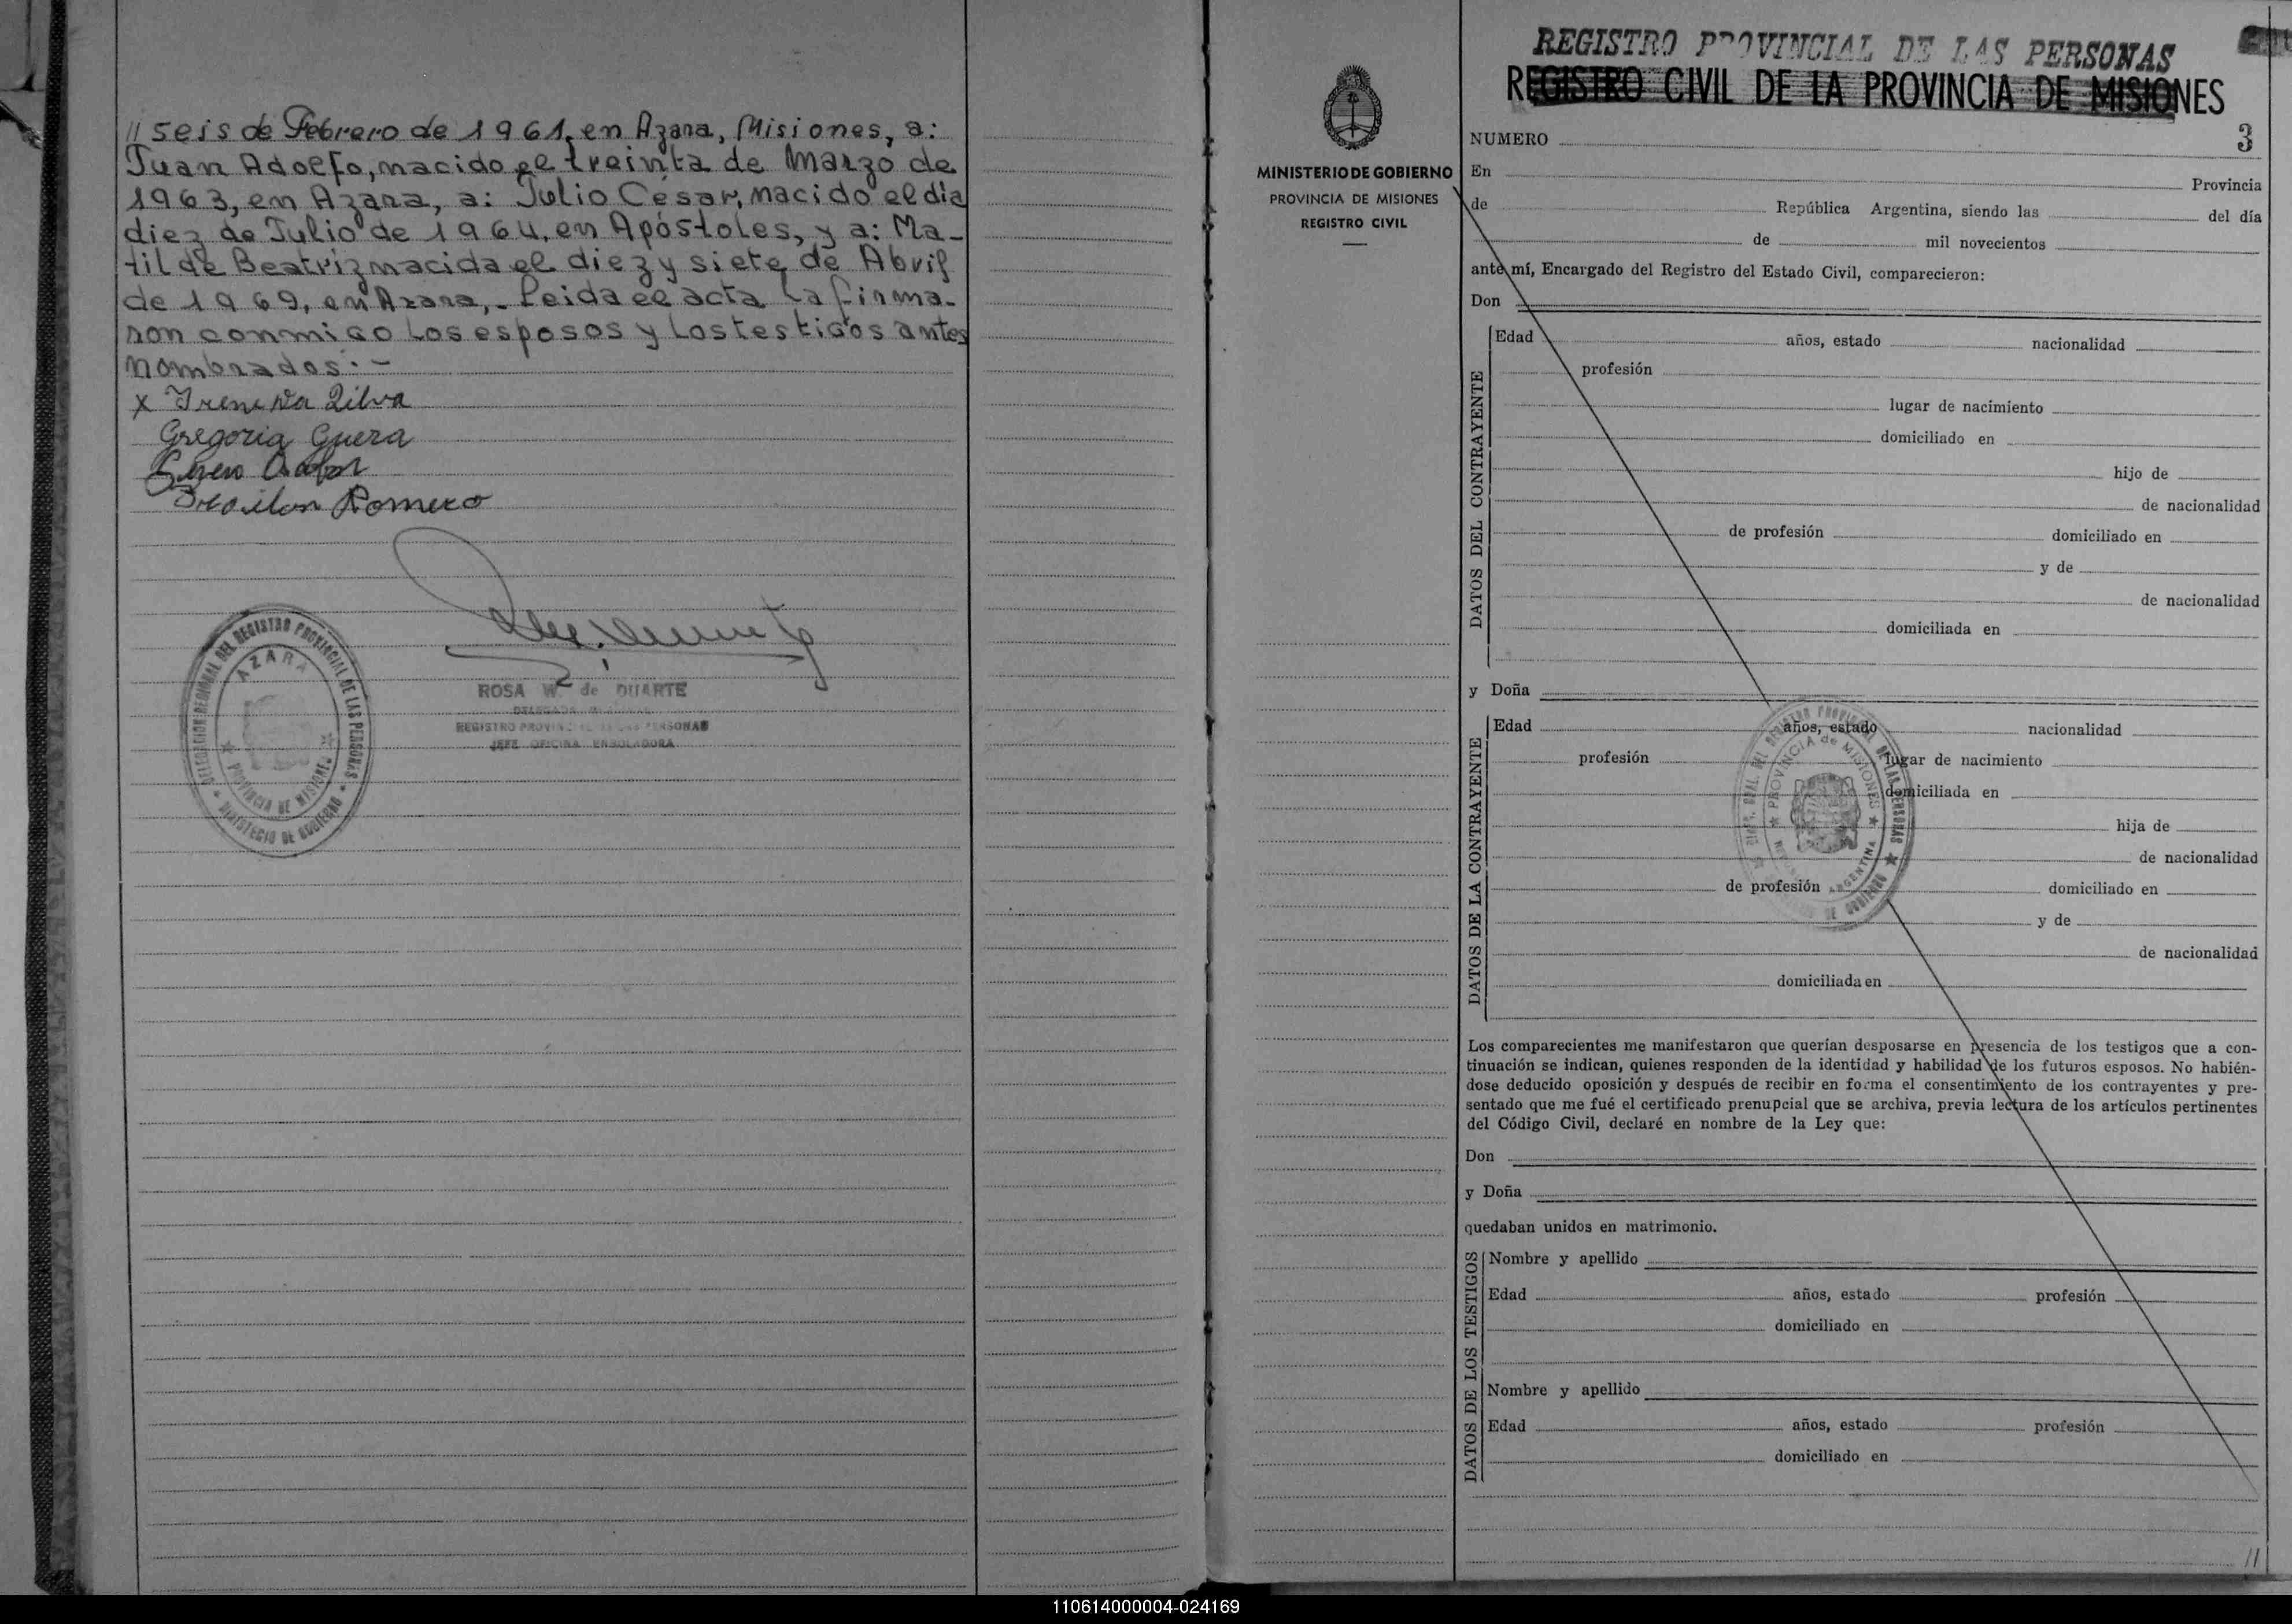 // seis de Febrero de 1961, en Azara, Misiones, a:
Juan Adolfo, nacido el treinta de Marzo de
1963, en Azara, a: Julio César, nacido el día
diez de Julio de 1964, en Apóstoles, y a: Ma-
tilde Beatriz nacida el diez y siete de Abril
de 1969, en Azara,- Leida el acta la firma-
ron conmigo los esposos y los testigos antes
nombrados:-
x Irene Da Silva
Gregoria Guera
Romero
DELEGACION REGIONAL DEL REGISTRO PROVINCIAL DE LAS PERSONAS
AZARA
PROVINCIA DE MISIONES
MINISTERIO DE GOBIERNO
ROSA W. de DUARTE
DELEGADA
REGISTRO PROVINCIAL DE LAS PERSONAS
JEFE OFICINA ENROLADORA
MINISTERIO DE GOBIERNO
PROVINCIA DE MISIONES
REGISTRO CIVIL
REGISTRO PROVINCIAL DE LAS PERSONAS
REGISTRO CIVIL DE LA PROVINCIA DE MISIONES
NUMERO 3
En Provincia
de República Argentina, siendo las del día
de mil novecientos
ante mí, Encargado del Registro del Estado Civil, comparecieron:
Don
DATOS DEL CONTRAYENTE
Edad años, estado nacionalidad
profesión
lugar de nacimiento
domiciliado en
hijo de
de nacionalidad
de profesión domiciliado en
y de
de nacionalidad
domiciliada en
y Doña
DATOS DE LA CONTRAYENTE
Edad años, estado nacionalidad
profesión lugar de nacimiento
domiciliada en
hija de
de nacionalidad
de profesión domiciliado en
y de
de nacionalidad
domiciliada en
DIREC. GRAL. DEL REGISTRO PROVINCIAL DE LAS PERSONAS
PROVINCIA de MISIONES
ARGENTINA
DE GOBIERNO
Los comparecientes me manifestaron que querían desposarse en presencia de los testigos que a con-
tinuación se indican, quienes responden de la identidad y habilidad de los futuros esposos. No habién-
dose deducido oposición y después de recibir en forma el consentimiento de los contrayentes y pre-
sentado que me fué el certificado prenupcial que se archiva, previa lectura de los artículos pertinentes
del Código Civil, declaré en nombre de la Ley que:
Don
y Doña
quedaban unidos en matrimonio.
DATOS DE LOS TESTIGOS
Nombre y apellido
Edad años, estado profesión
domiciliado en
Nombre y apellido
Edad años, estado profesión
domiciliado en
//
110614000004-024169